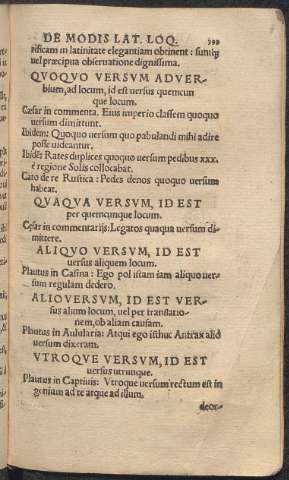 DE MODIS LAT. LOQ. 399
rificam in latinitate elegantiam obtinent: suntq;
uel præcipua obseruatione dignissima.
QVOQVO VERSVM ADVER-
bium, ad locum, id est uersus quemcun
que locum.
Cæsar in commenta. Eius imperio classem quoquo
uersum dimittunt.
Ibidem: Quoquo uersum quo pabulandi mihi adire
posse uideantur.
Ibidē: Rates duplices quoquo uersum pedibus xxx.
è regione Solis collocabat.
Cato de re Rustica: Pedes denos quoquo uersum
habeat.
QVAQVA VERSVM, ID EST
per quemcunque locum.
Cęsar in commentarijs: Legatos quaqua uersum di-
mittere.
ALIQVO VERSVM, ID EST
uersus aliquem locum.
Plautus in Casina: Ego pol istam iam aliquo uer-
sum regulam dedero.
ALIOVERSVM, ID EST VER-
sus alium locum, uel per translatio-
nem, ob aliam causam.
Plautus in Aulularia: Atqui ego isthuc Antrax alio
uersum dixeram.
VTROQVE VERSVM, ID EST
uersus utrunque.
Plautus in Captiuis: Vtroque uersum rectum est in
genium ad te atque ad illum.
deor-